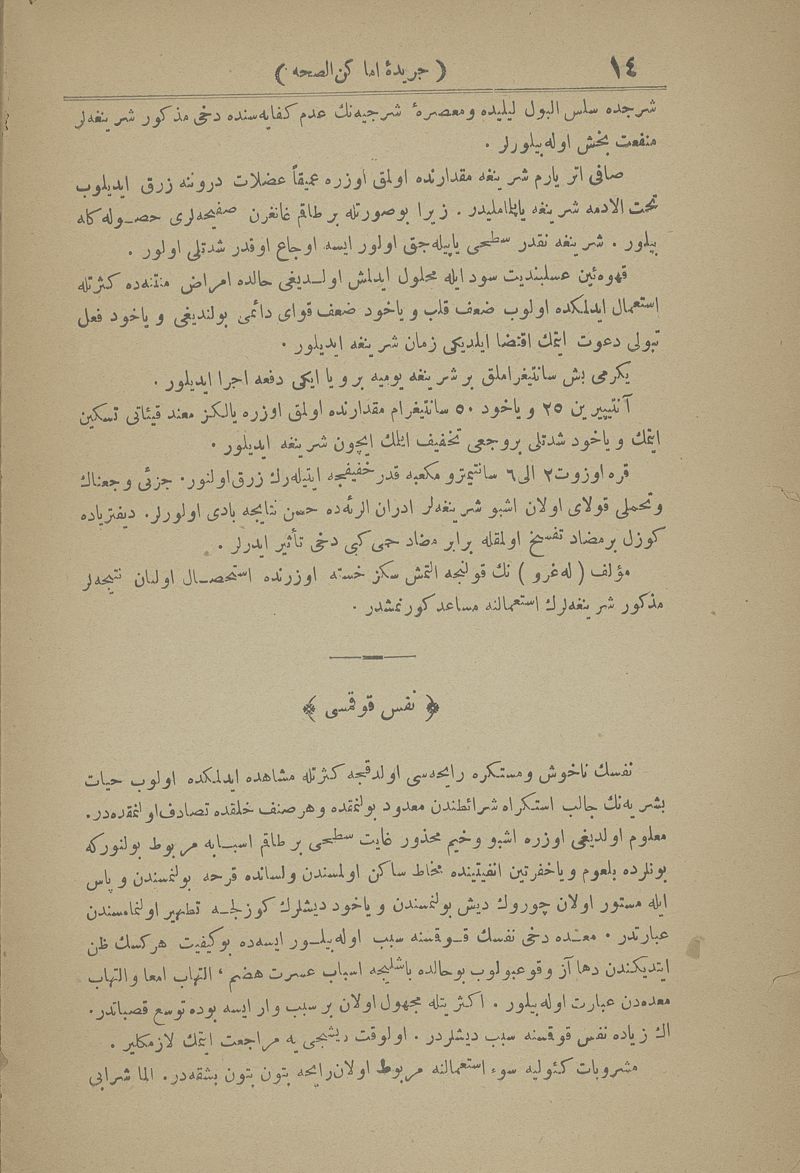 ١٤
( جریدهٔ اماکن الصحه )
شرجده سلس البول لیلیده ومعصرهٔ شرجیه‌نك عدم کفایه‌سنده دخی مذکور شرینغه‌لر
منفعت بخش اوله‌بیلورلر .
صافی اتر یارم شرینغه مقدارنده اولمق اوزره عمیقاً عضلات دروننه زرق ایدیلوب
تحت الادمه شرینغه یاپلمالیدر . زیرا بوصورتله بر طاقم غانغرن صفیحه‌لری حصوله کله
بیلور . شرینغه نقدر سطحی یاپیله‌جق اولور ایسه اوجاع اوقدر شدتلی اولور .
قهوه‌ئین عسلبندیت سود ایله محلول ایدلمش اولدیغی حالده امراض منتنه‌ده کثرتله
استعمال ایدلمکده اولوب ضعف قلب و یاخود ضعف قوای دائمی بولندیغی و یاخود فعل
تبولی دعوت ایتمك اقتضا ایلدیکی زمان شرینغه ایدیلور .
یکرمی بش سانتیغراملق بر شرینغه یومیه بر و یا ایکی دفعه اجرا ایدیلور .
آنتیپیرین ٢٥ و یاخود ٥٠ سانتیغرام مقدارنده اولمق اوزره یالکز معند قیئاتی تسکین
ایتمك و یاخود شدتلی بروجعی تخفیف ایلمك ایچون شرینغه ایدیلور .
قره اوزوت ٢ الی ٦ سانتیمترو مکعبه قدر خفیفجه ایتیله‌رك زرق اولنور . جزئی وجعناك
وتحملی قولای اولان اشبو شرینغه‌لر ادران الرئه‌ده حسن نتایجه بادی اولورلر . دیفتریاده
کوزل برمضاد تفسخ اولمقله برابر مضاد حمی کبی دخی تأثیر ایدرلر .
مؤلف ( له‌غرو ) نك قولنجه التمش سکز خسته اوزرنده استحصال اولنان نتیجه‌لر
مذکور شرینغه‌لرك استعمالنه مساعد کورنمشدر .
﴿ نفس قوقمسی ﴾
نفسك ناخوش ومستکره رایحه‌سی اولدقجه کثرتله مشاهده ایدلمکده اولوب حیات
بشریه‌نك جالب استکراه شرائطندن معدود بولنمقده وهر صنف خلقده تصادف اولنمقده‌در .
معلوم اولدیغی اوزره اشبو وخیم محذور غایت سطحی بر طاقم اسبابه مربوط بولنورکه
بونلرده بلعوم و یاخفرتین انفیتینده مخاط ساکن اولمسندن ولسانده قرحه بولنمسندن و پاس
ایله مستور اولان چوروك دیش بولنمسندن و یاخود دیشلرك کوزلجه تطهیر اولنمامسندن
عبارتدر . معده دخی نفسك قوقسنه سبب اوله‌بیلور ایسه‌ده بوکیفیت هرکسك ظن
ایتدیکندن دها آز وقوعبولوب بوحالده باشلیجه اسباب عسرت هضم ، التهاب امعا والتهاب
معده‌دن عبارت اوله‌بیلور . اکثریتله مجهول اولان بر سبب وار ایسه بوده توسع قصباتدر .
اك زیاده نفس قوقسنه سبب دیشلردر . اولوقت دیشجی یه مراجعت ایتمك لازمکلیر .
مشروبات کئولیه سوء استعمالنه مربوط اولان رایحه بتون بتون بشقه‌در . الما شرابی